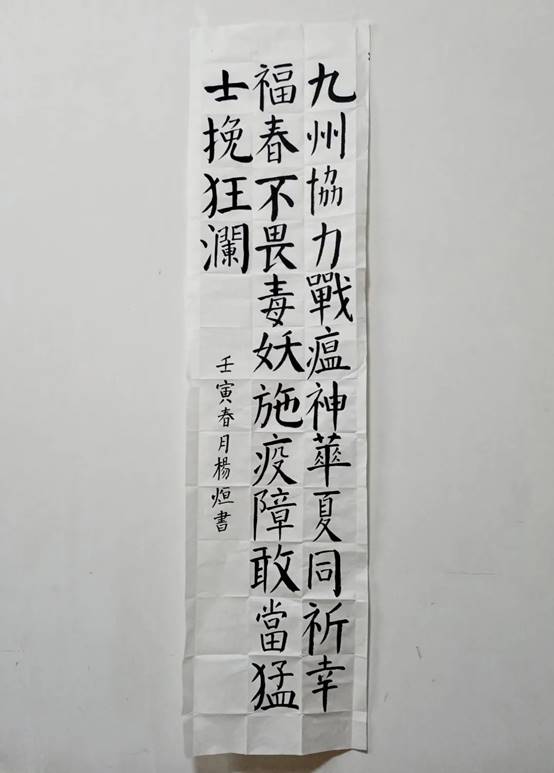 九州協力戰瘟神華夏同祈幸
福春不畏毒妖施疫障敢當猛
士挽狂瀾
壬寅春月楊烜書